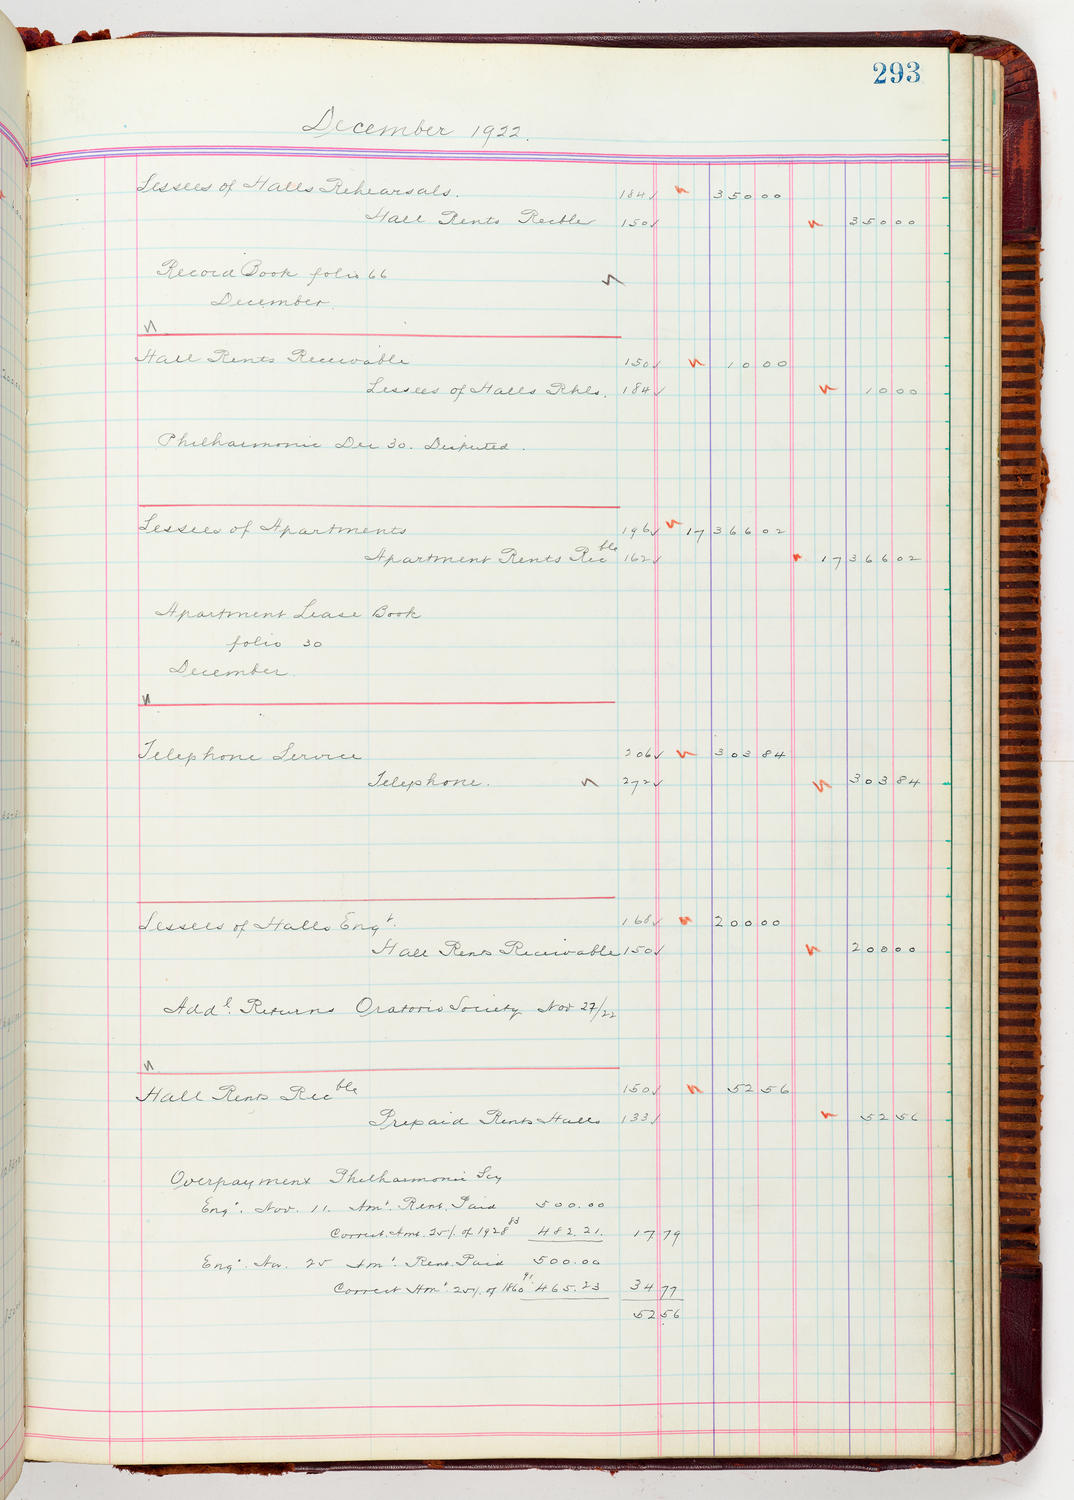 293
December 1922.
Lessees of Halls Rehearsals. 184 350 00
Hall Rents Recble 150 350 00
Record Book folio 66
December.
Hall Rents Receivable 150 10 00
Lessees of Halls Rhls. 184 10 00
Philharmonic Dec 30. Disputed.
Lessees of Apartments 196 17 366 02
Apartment Rents Recble 162 17 366 02
Apartment Lease Book
folio 30
December.
Telephone Service 206 303 84
Telephone. 272 303 84
Lessees of Halls Engt. 168 200 00
Hall Rents Receivable 150 200 00
Addl. Returns Oratorio Society Nov 27/22
Hall Rents Recble 150 52 56
Prepaid Rents Halls 133 52 56
Overpayment Philharmonic Socy
Engt. Nov. 11. Amt. Rent Paid 500.00
Correct Amt. 25% of 1928.83 482.21. 17 79
Engt. Nov. 25 Amt. Rent Paid 500.00
Correct Amt. 25% of 1860.91 465.23 34 77
52 56